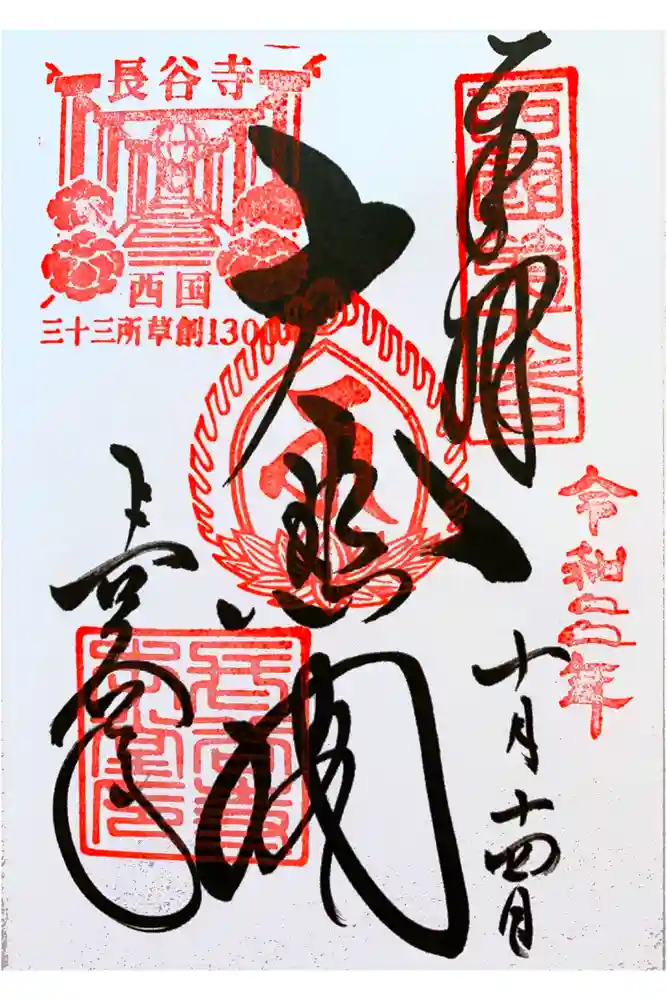 長谷寺
西国
三十三所草創1300
奉拝
西國第八番
令和二年
十月十四日
大悲閣
長谷寺